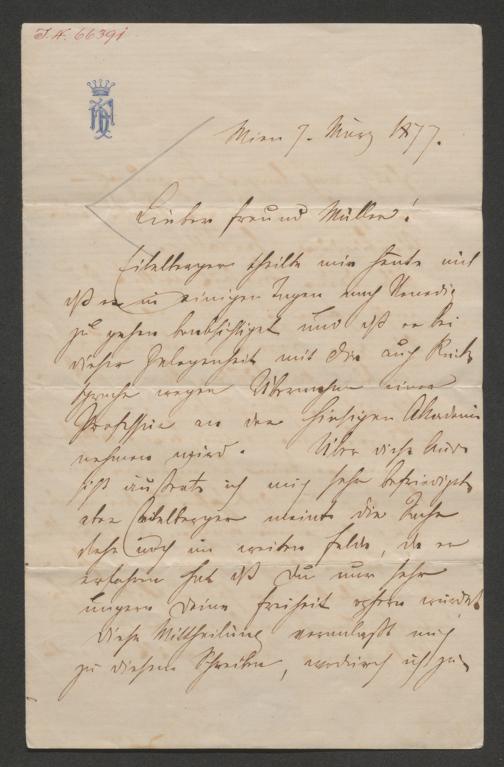 I.N. 66391
Wien 7. März 1877.
Lieber Freund Müller!
Eitelberger theilte mir heute mit
daß er in einigen Tagen nach Venedig
zu gehen beabsichtiget und daß er bei
dieser Gelegenheit mit Dir auch Rück-
sprache wegen Übernahme einer
Professur an der hiesigen Akademie
nehmen wird. Über diese Aus-
sicht äußerte ich mich sehr befriedigt
aber Eitelberger meinte die Sache
stehe noch im weiten Felde, da er
erfahren hat daß Du nur sehr
ungern Deine Freiheit opfern würdest
Diese Mittheilung veranlaßt mich
zu diesem Schreiben, wodurch ich zu